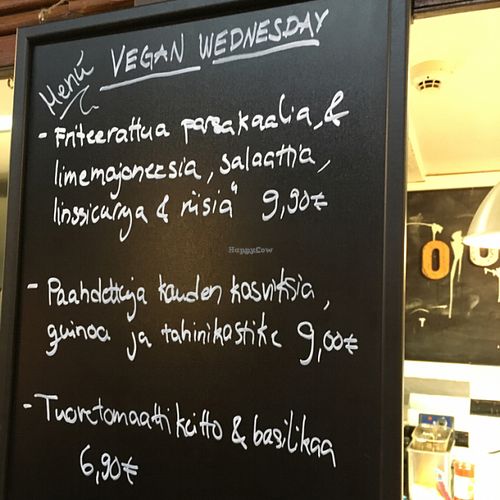 Menú VEGAN WEDNESDAY
- Friteerattua parsakaalia, &
limemajoneesia, salaattia,
linssicurrya & riisiä 9,90€
- Paahdettuja kauden kasviksia,
quinoa ja tahinikastike 9,00€
- Tuoretomaattikeitto & basilikaa
6,90€
HappyCow